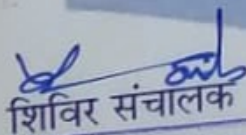 शिविर संचालक